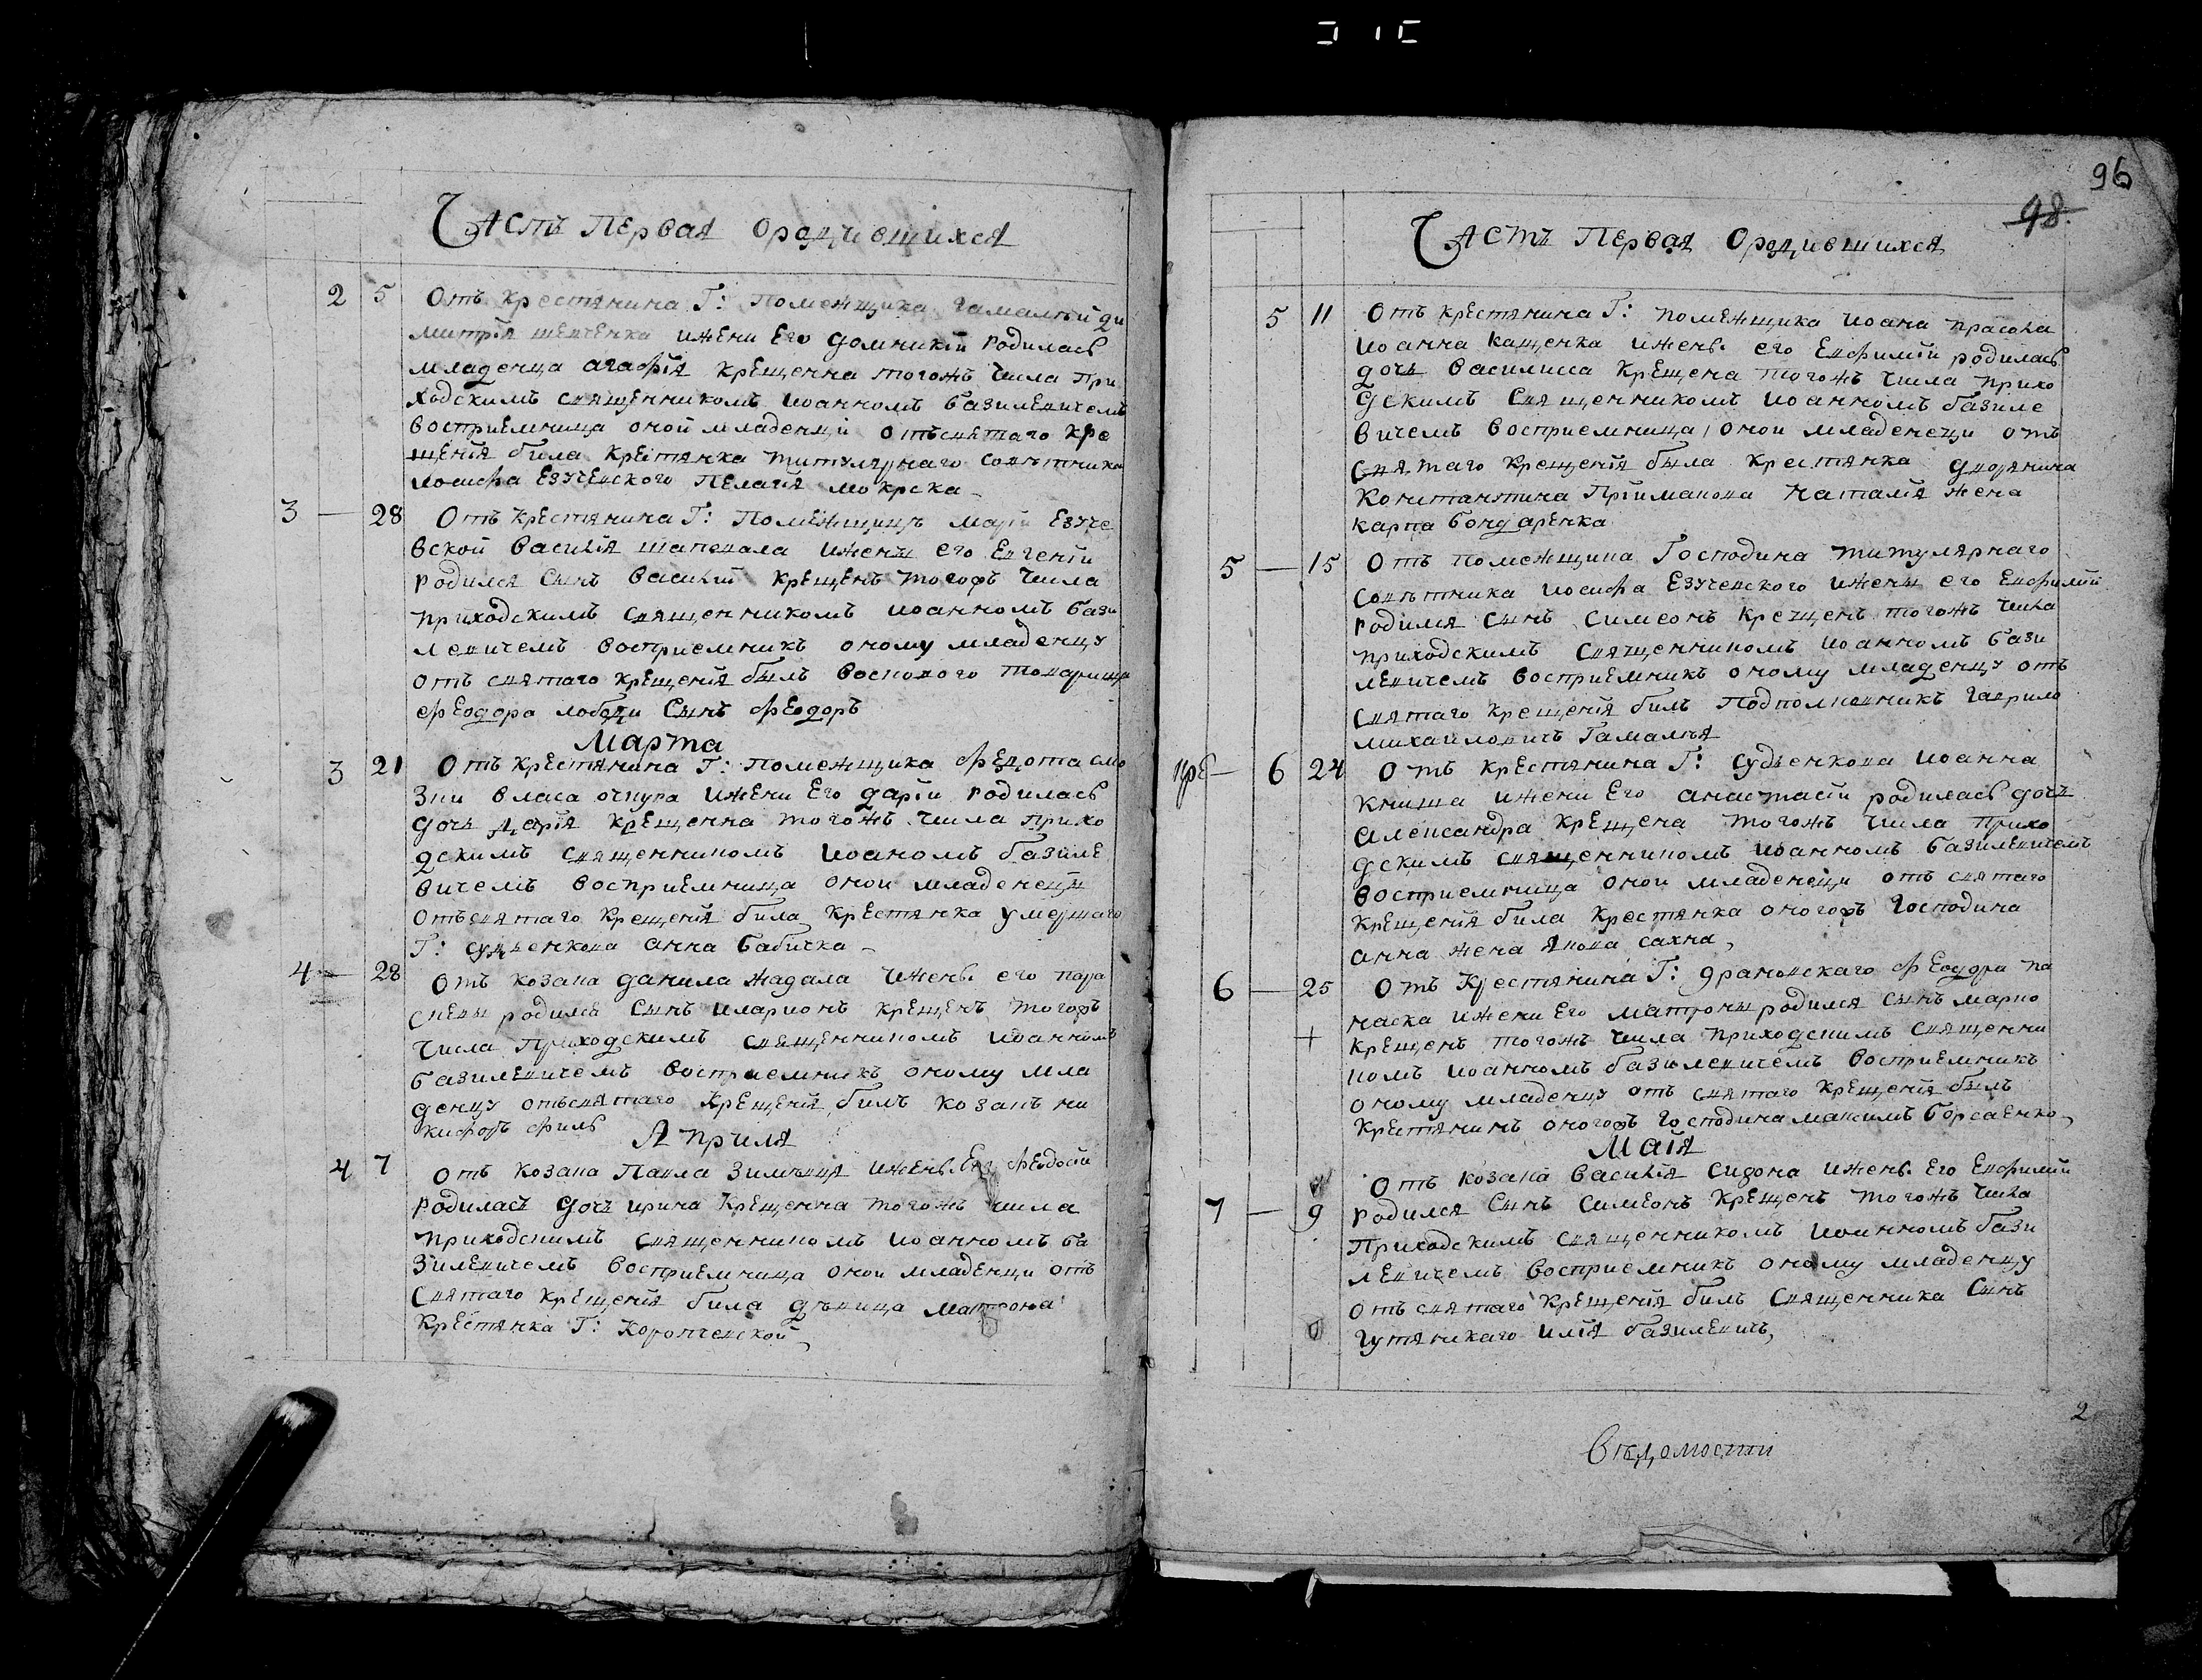 Часть Первая Ородившихся
2 5 Отъ крестянина Г: Помежщика Гамалѣй ди
митрія шевченка ижени Его домникіи родилась
младенца агафія Крещенна тогожъ числа при
ходскимъ священникомъ иоанномъ базилевичемъ
восприемница оной младенци отъсвятаго кре
щенія била крестянка титулярнаго совѣтника
иосифа Езучевского Пелагія мокрска
3 — 28 Отъ Крестянина Г: Помежщицѣ маріи Езуче
вской василія шаповала ижены его Евгеніи
родился Сынъ василій крещенъ тогожъ числа
приходскимъ священникомъ иоанномъ бази
левичемъ восприемникъ оному младенцу
отъ святаго крещенія былъ воскового товарища
феодора лободи Сынъ феодоръ
Марта
3 21 Отъ крестянина Г: помежщика федота
власа очкура ижени Его даріи родилась
дочь дарія крещенна тогожъ числа прихо
дскимъ священникомъ иоаномъ базиле
вичемъ восприемница оной младенеци
отъсвятаго Крещенія била крестянка умершаго
Г: судіенкова анна бабичка
4 — 28 отъ козака данила жадала иженѣ его пара
скевы родился Сынъ иларионъ крещенъ тогожъ
числа приходскимъ священникомъ иоанномъ
базилевичемъ восприемникъ оному мла
денцу отъсвятаго Крещенія билъ козакъ ни
кифоръ филь
Априля
4 7 отъ козака Павла Зимъвця иженѣ Его феодосіи
родилась дочь ирина Крещенна тогожъ числа
приходскимъ священникомъ иоанномъ ба
зилевичемъ восприемница оной младенци отъ
святаго крещенія била дѣвица матрона
крестянка Г: Коропчевской
96
98.
Часть Первая Ородившихся
5 11 Отъ крестянина Г: помежщика иоана прасола
иоанна кащенка иженѣ его Евфиміи родилась
дочь василисса крещена тогожъ числа прихо
дскимъ Священникомъ иоанномъ базиле
вичемъ восприемница оной младенеци отъ
святаго крещенія была крестянка дворянина
константина Пріймакова наталія жена
карпа бондаренка
5 — 15 Отъ помежщика Господина титулярнаго
совѣтника иосифа Езучевского ижены его Евфиміи
родился сынъ симеонъ крещенъ тогожъ числа
приходскимъ священникомъ иоанномъ бази
левичемъ восприемникъ оному младенцу отъ
святаго крещенія билъ Подполковникъ гаврило
михаиловичъ Гамалѣя
6 24 Отъ крестянина Г: Судіенкова иоанна
книша ижени Его анастасіи родилась дочь
александра крещена тогожъ числа прихо
дскимъ священникомъ иоанномъ базилевичемъ
восприемница оной младенеци отъ святаго
крещенія била крестянка оногожъ господина
анна жена якова сахна
6 — 25 Отъ Крестянина Г: драновскаго феодора па
наска ижени Его матроны родился сынъ марко
крещенъ тогожъ числа приходскимъ священни
комъ иоанномъ базилевичемъ восприемникъ
оному младенцу отъ святаго крещенія былъ
крестянинъ оногожъ господина максимъ борсаенко
Маія
отъ козака василія сидона иженѣ Его Евфиміи
7 — 9 родился Сынъ Симеонъ крещенъ тогожъ числа
Приходскимъ священникомъ иоанномъ бази
левичемъ восприемникъ оному младенцу
отъ святаго крещенія билъ Священника Сынъ
гутянскаго илія базилевичъ
2
Вѣдомости